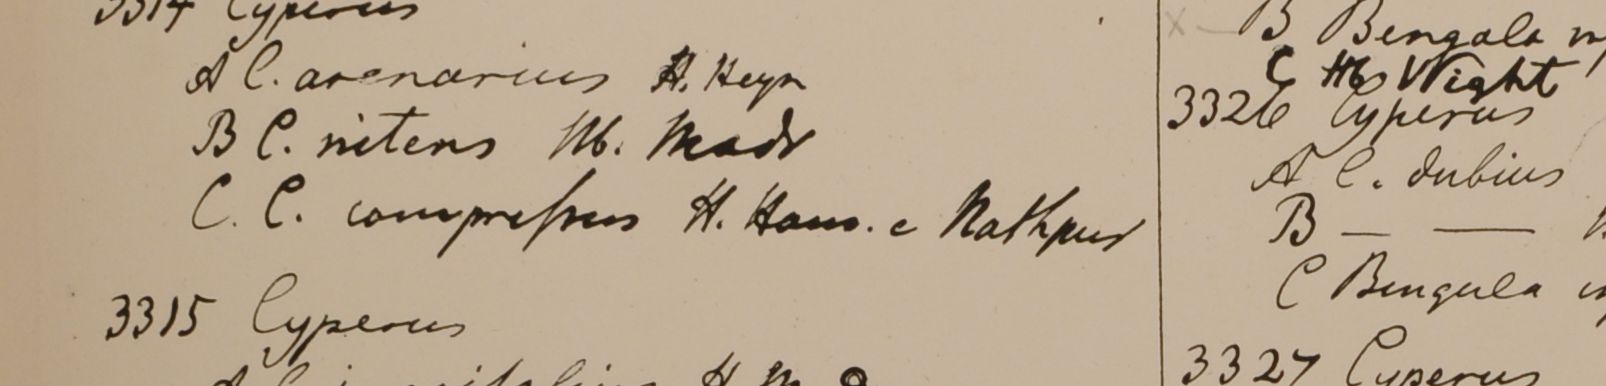 3314 Cyperus
A C. arenarius H. Heyn
B C. nitens Hb. Madr
C. C. compreſsus H. Ham. e Nathpur
3315 Cyperus
B Bengala
C Hb Wight
3326 Cyperus
A C. dubius
B — —
C Bengala
3327 Cyperus